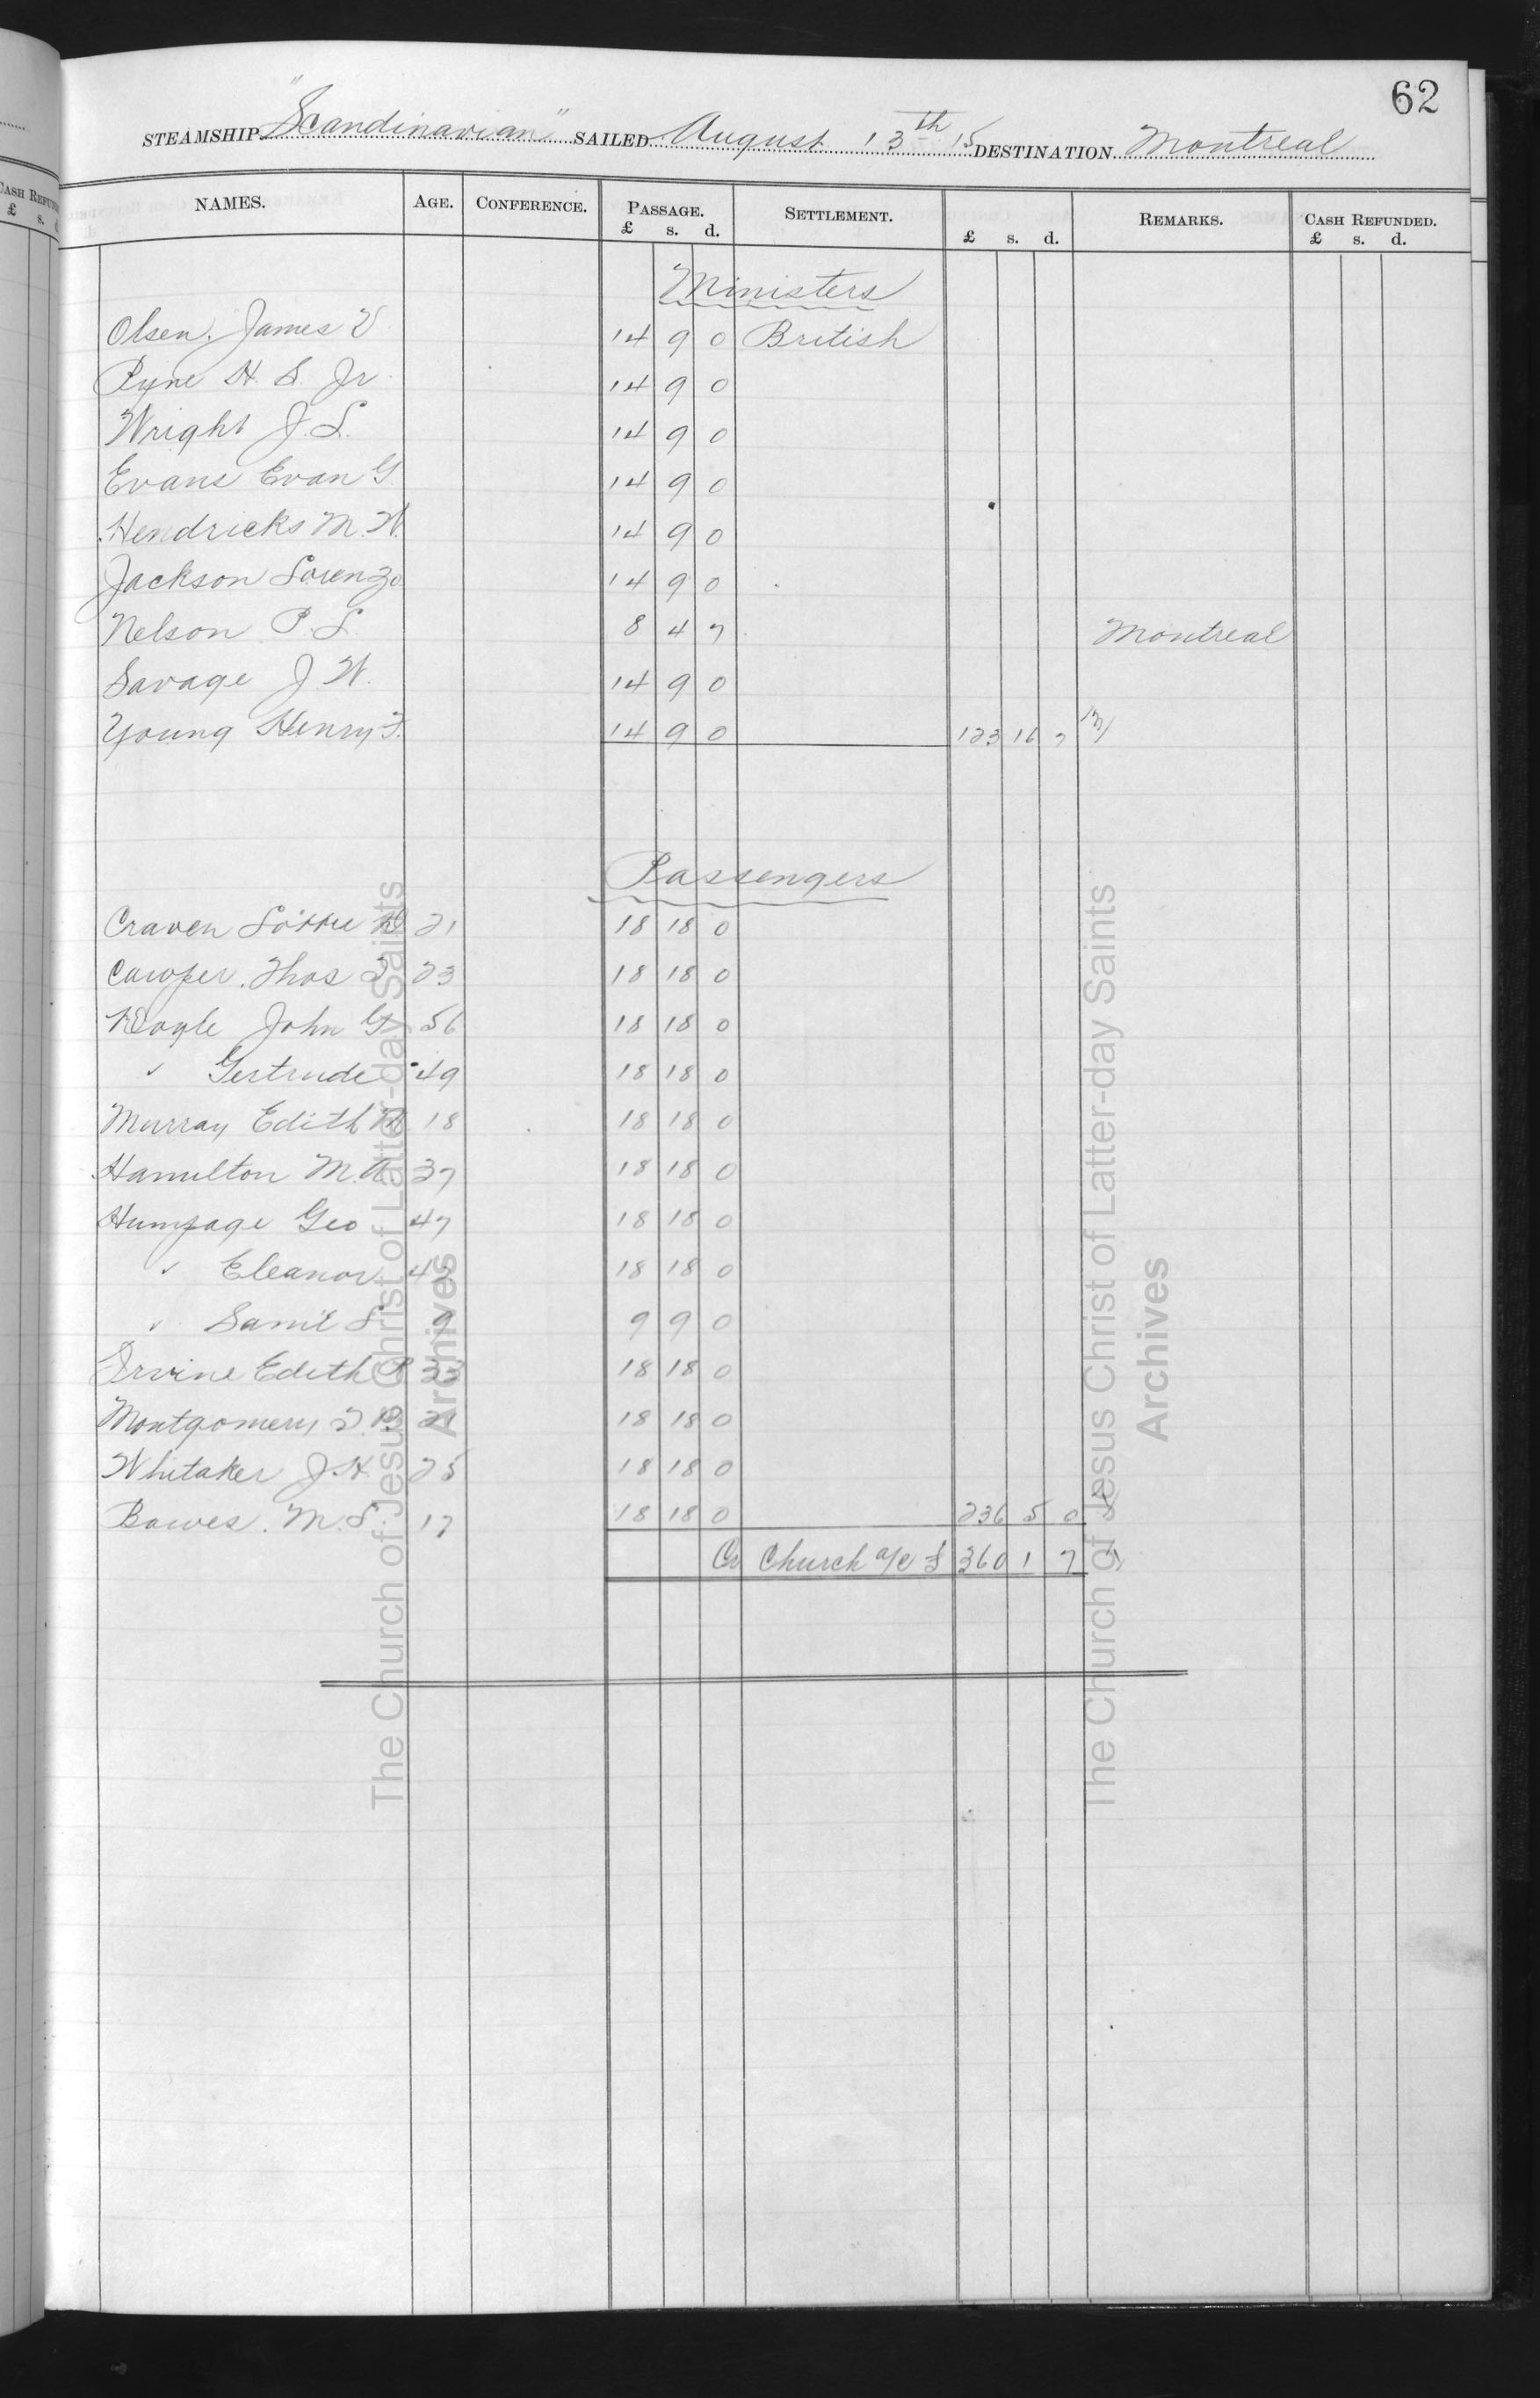 62
STEAMSHIP "Scandinavian" SAILED August 13th 15 DESTINATION Montreal
NAMES. AGE. CONFERENCE. PASSAGE. £ s. d. SETTLEMENT. £ s. d. REMARKS. CASH REFUNDED. £ s. d.
Ministers
Olsen, James V 14 9 0 British
Pyne H. S. Jr 14 9 0
Wright J. L. 14 9 0
Evans Evan G. 14 9 0
Hendricks M. W. 14 9 0
Jackson Lorenzo 14 9 0
Nelson P. L. 8 4 7 Montreal
Savage J. W. 14 9 0
Young Henry F. 14 9 0 123 16 7
Passengers
Craven Lottie 21 18 18 0
Cowper. Thos 23 18 18 0
Hoyle John G 56 18 18 0
" Gertrude 49 18 18 0
Murray Edith M 18 18 18 0
Hamilton M. A. 37 18 18 0
Humpage Geo 47 18 18 0
" Eleanor 18 18 0
" Saml S 9 9 9 0
Irvine Edith P 33 18 18 0
Montgomery 21 18 18 0
Whitaker J. H. 25 18 18 0
Bowes. M. S. 17 18 18 0 236 5 0
Cr Church a/c £ 360 1 7
The Church of Jesus Christ of Latter-day Saints
Archives
The Church of Jesus Christ of Latter-day Saints
Archives
CASH REFUN
£ s. d